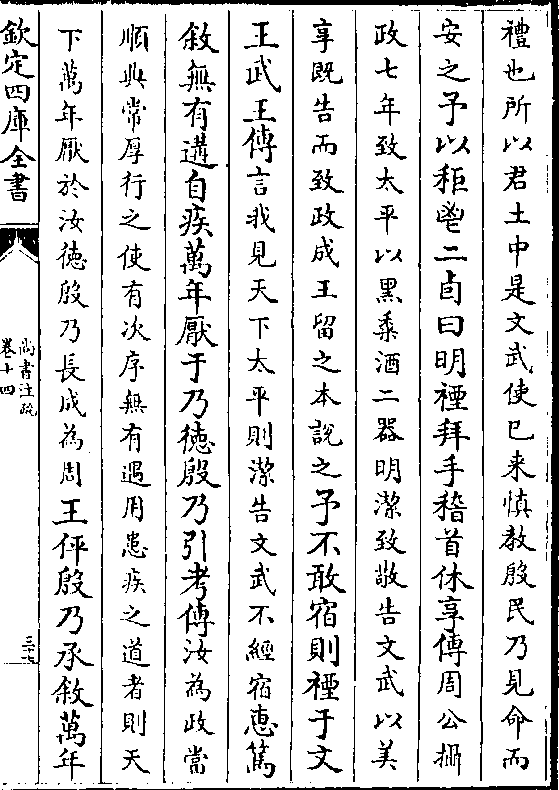 禮也所以君土中是文武使已来慎教殷民乃見命而
安之予以秬鬯二卣曰明禋拜手稽首休享傳周公攝
政七年致太平以黒黍酒二器明潔致敬告文武以美
享既告而致政成王留之本說之予不敢宿則禋于文
王武王傳言我見天下太平則潔告文武不經宿惠篤
敘無有遘自疾萬年厭于乃徳殷乃引考傳汝為政當
順典常厚行之使有次序無有遇用患疾之道者則天
下萬年厭於汝徳殷乃長成為周王伻殷乃承敘萬年
欽定四庫全書
尚書注疏
卷十四